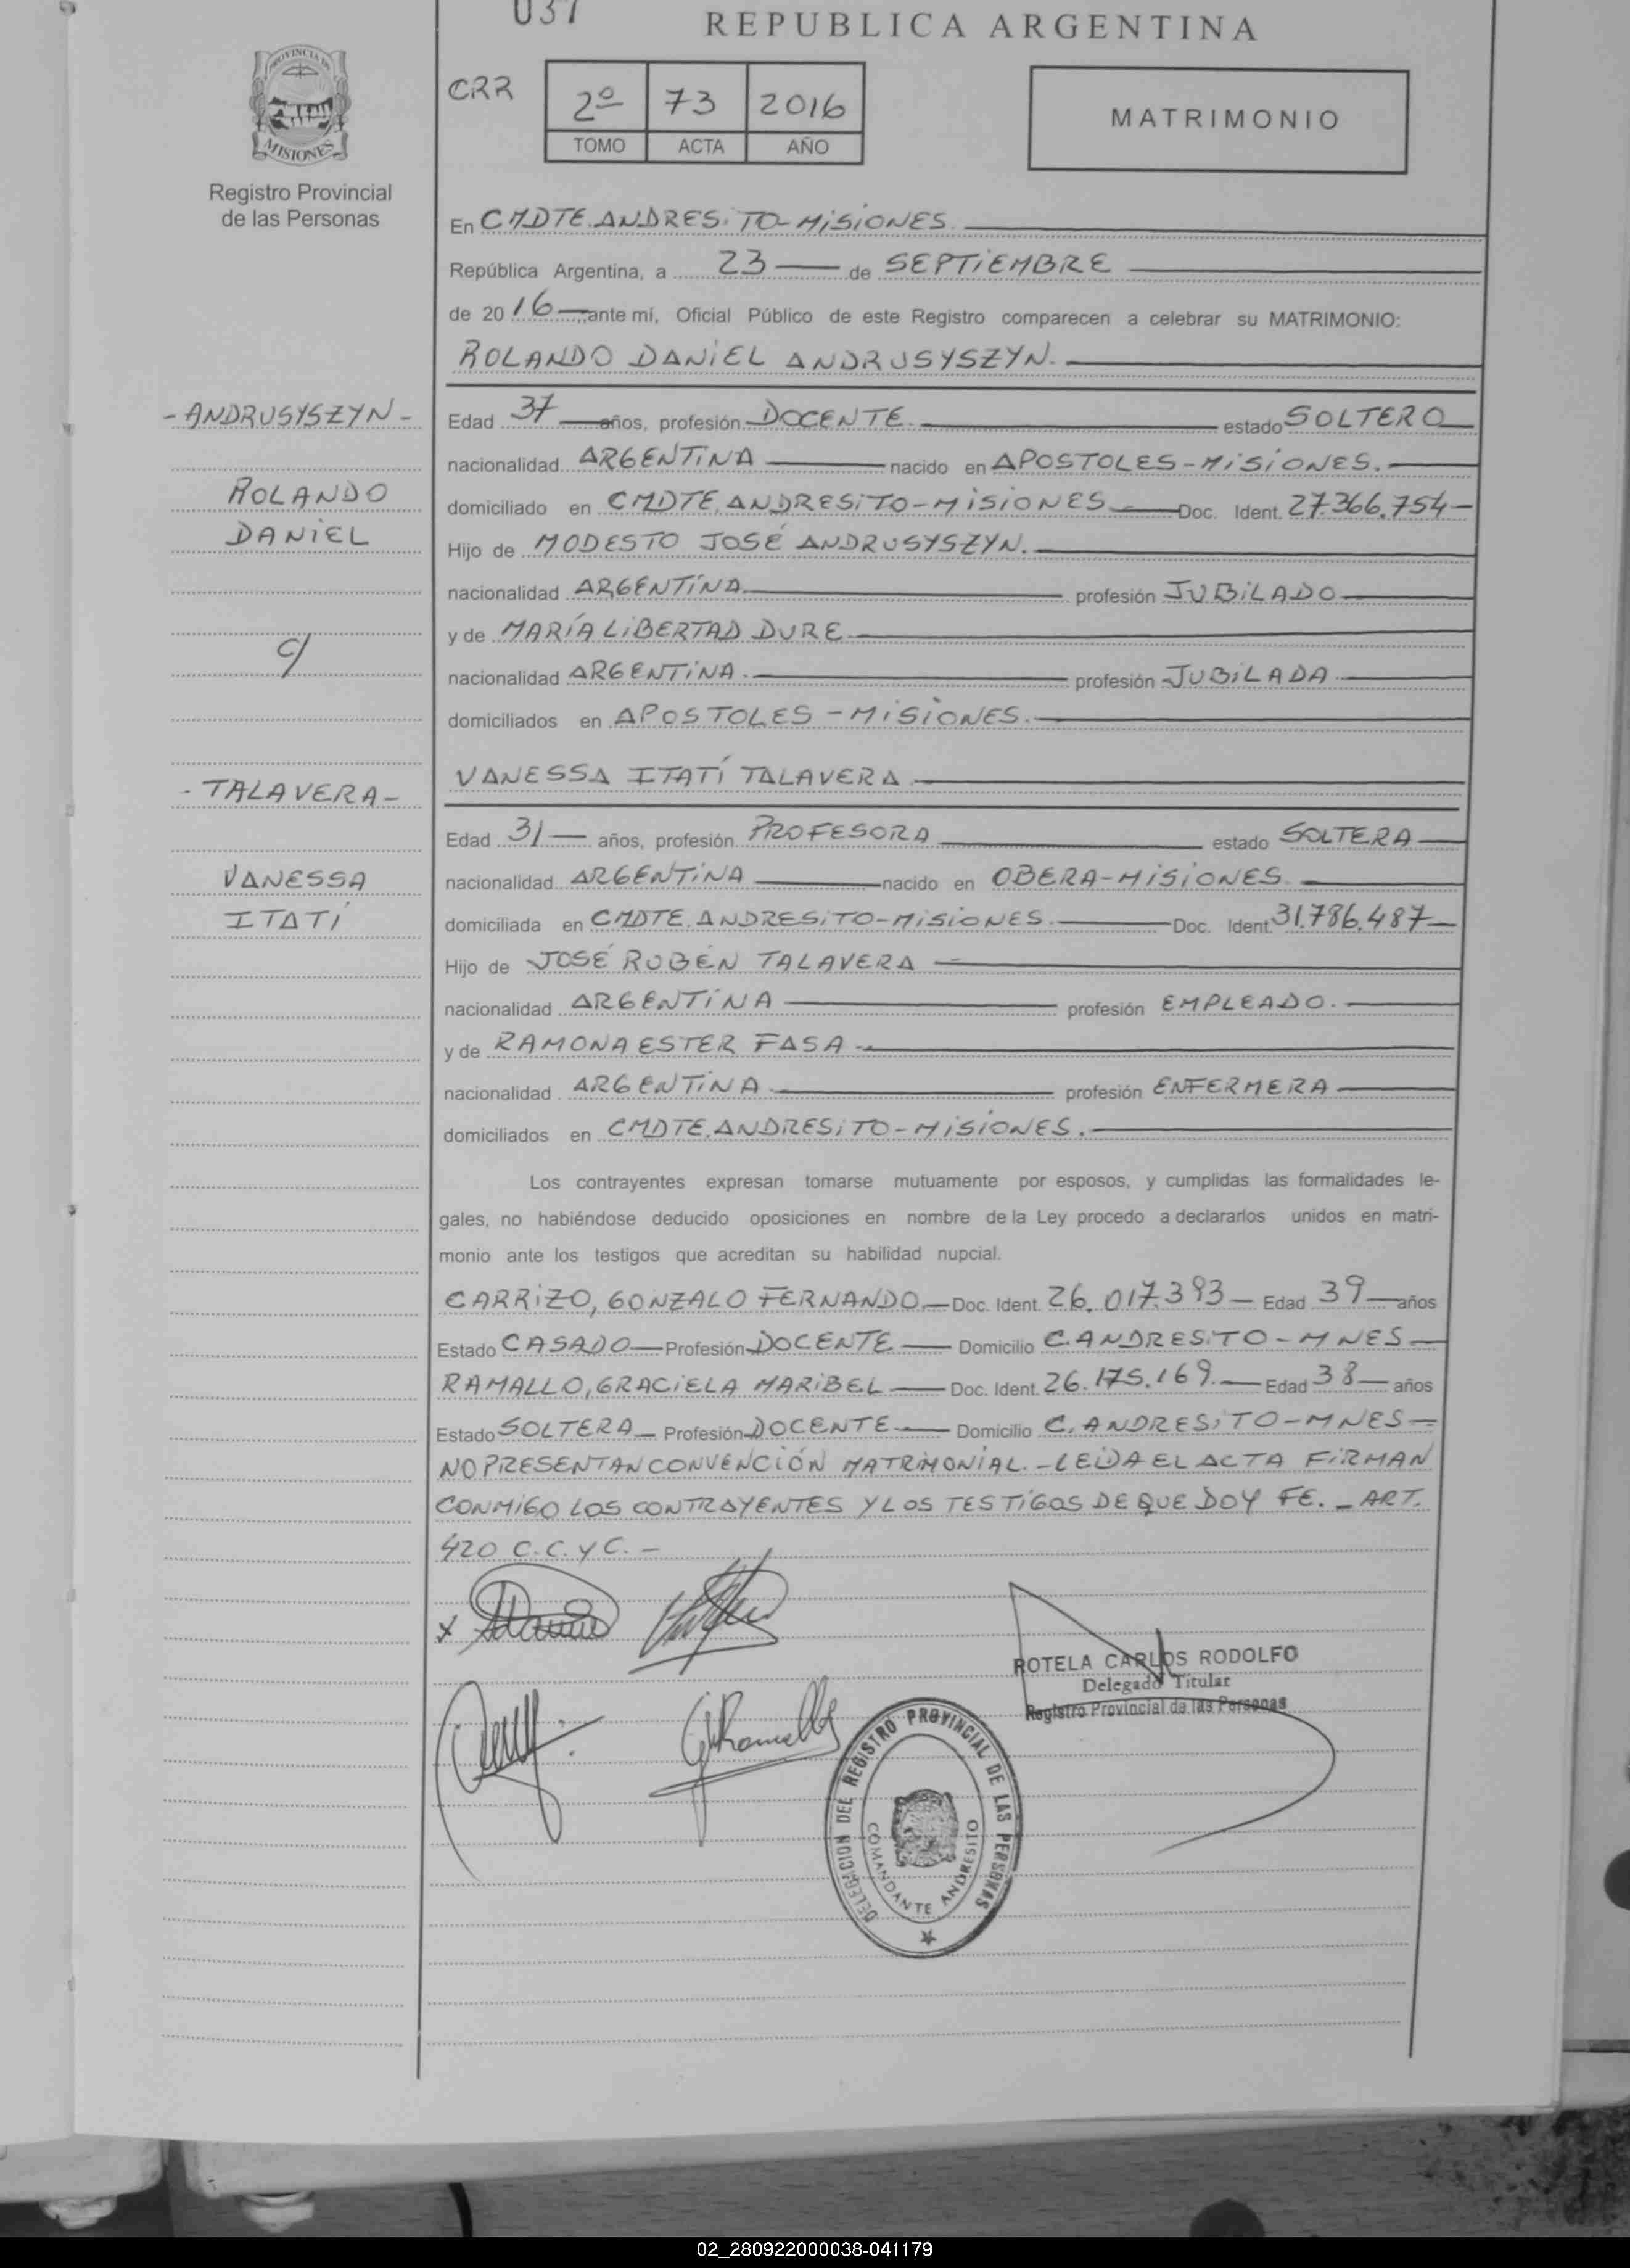 037
REPUBLICA ARGENTINA
PROVINCIA DE
MISIONES
Registro Provincial
de las Personas
CRR
2º 73 2016
TOMO ACTA AÑO
MATRIMONIO
En CMDTE. ANDRESiTO-MiSiONES.
República Argentina, a 23 de SEPTiEMBRE
de 2016 ante mí, Oficial Público de este Registro comparecen a celebrar su MATRIMONIO:
ROLANDO DANiEL ANDRUSYSZYN.
-ANDRUSYSZYN-
ROLANDO
DANiEL
c/
-TALAVERA-
VANESSA
ITATÍ
Edad 37 años, profesión DOCENTE. estado SOLTERO
nacionalidad ARGENTiNA nacido en APOSTOLES-MiSiONES.
domiciliado en CMDTE. ANDRESiTO-MiSiONES Doc. Ident. 27.366.754-
Hijo de MODESTO JOSÉ ANDRUSYSZYN.
nacionalidad ARGENTiNA profesión JUBiLADO
y de MARÍA LiBERTAD DURE
nacionalidad ARGENTiNA. profesión JUBiLADA
domiciliados en APOSTOLES-MiSiONES.
VANESSA ITATÍ TALAVERA
Edad 31 años, profesión PROFESORA estado SOLTERA
nacionalidad ARGENTiNA nacido en OBERA-MiSiONES
domiciliada en CMDTE. ANDRESiTO-MiSiONES. Doc. Ident. 31.786.487
Hijo de JOSÉ RUBÉN TALAVERA
nacionalidad ARGENTiNA profesión EMPLEADO.
y de RAMONA ESTER FASA
nacionalidad ARGENTiNA profesión ENFERMERA
domiciliados en CMDTE. ANDRESiTO-MiSiONES.
Los contrayentes expresan tomarse mutuamente por esposos, y cumplidas las formalidades le-
gales, no habiéndose deducido oposiciones en nombre de la Ley procedo a declararlos unidos en matri-
monio ante los testigos que acreditan su habilidad nupcial.
CARRiZO, GONZALO FERNANDO Doc. Ident. 26.017.393 Edad 39 años
Estado CASADO Profesión DOCENTE Domicilio C. ANDRESiTO-MNES
RAMALLO, GRACiELA MARiBEL Doc. Ident. 26.175.169. Edad 38 años
Estado SOLTERA Profesión DOCENTE Domicilio C. ANDRESiTO-MNES
NO PRESENTAN CONVENCiÓN MATRiMONiAL.-LEiDA EL ACTA FiRMAN
CONMiGO LOS CONTRAYENTES Y LOS TESTiGOS DE QUE DOY FE.- ART.
420 C.C. y C.-
x
ROTELA CARLOS RODOLFO
Delegado Titular
Registro Provincial de las Personas
DELEGACION DEL REGISTRO PROVINCIAL DE LAS PERSONAS
COMANDANTE ANDRESITO
02_280922000038-041179